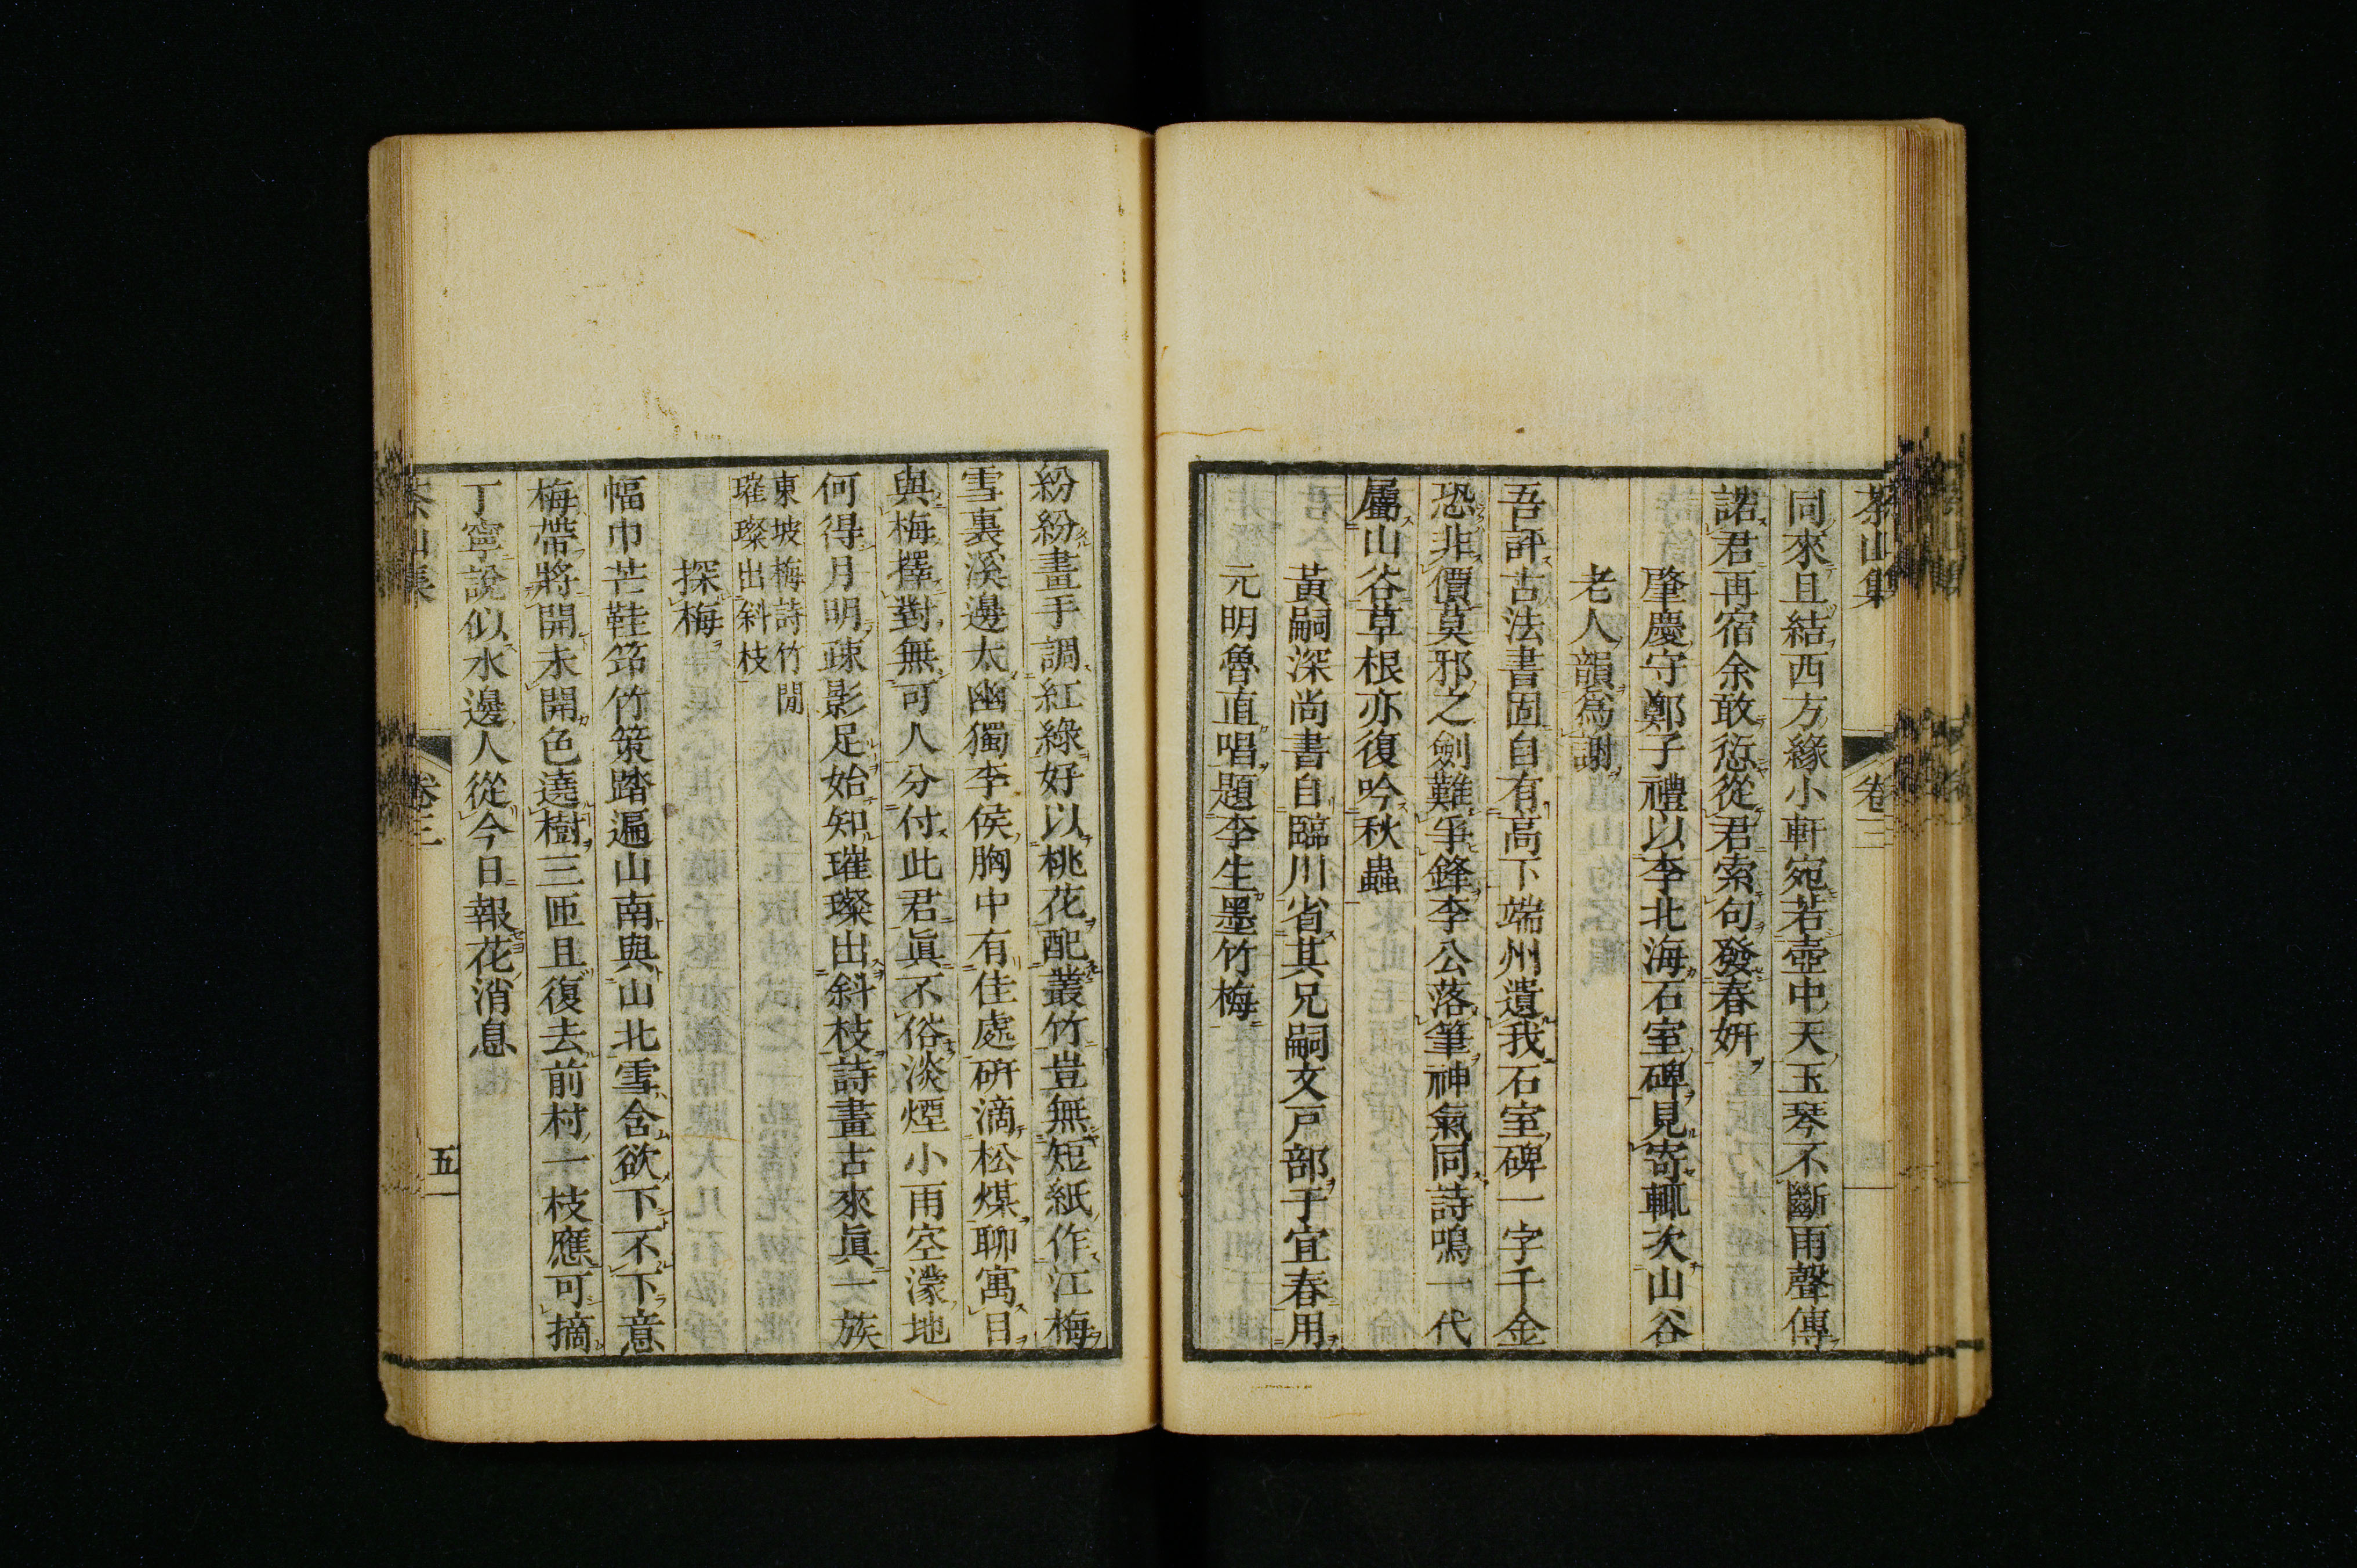 茶山集　卷三
同來且結西方緣小軒宛若壺中天玉琴不斷雨聲傳
諾君再宿余敢愆從君索句發春妍
肇慶守鄭子禮以李北海石室碑見寄輒次山谷
老人韻爲謝
吾評古法書固自有高下端州遺我石室碑一字千金
恐非價莫邪之劍難爭鋒李公落筆神氣同詩鳴一代
屬山谷草根亦復吟秋蟲
黃嗣深尚書自臨川省其兄嗣文戸部于宜春用
元明魯直唱題李生墨竹梅
紛紛畫手調紅綠好以桃花配叢竹豈無短紙作江梅
雪裏溪邊太幽獨李侯胸中有佳處硏滴松煤聊寓目
與梅擇對無可人分付此君眞不俗淡煙小雨空濛地
何得月明疎影足始知璀璨出斜枝詩畫古來眞一族
東坡梅詩竹閒
璀璨出斜枝
探梅
幅巾芒鞋筇竹策踏遍山南與山北雪含欲下不下意
梅帶將開未開色遶樹三匝且復去前村一枝應可摘
丁寧說似水邊人從今日報花消息
茶山集　卷三　五